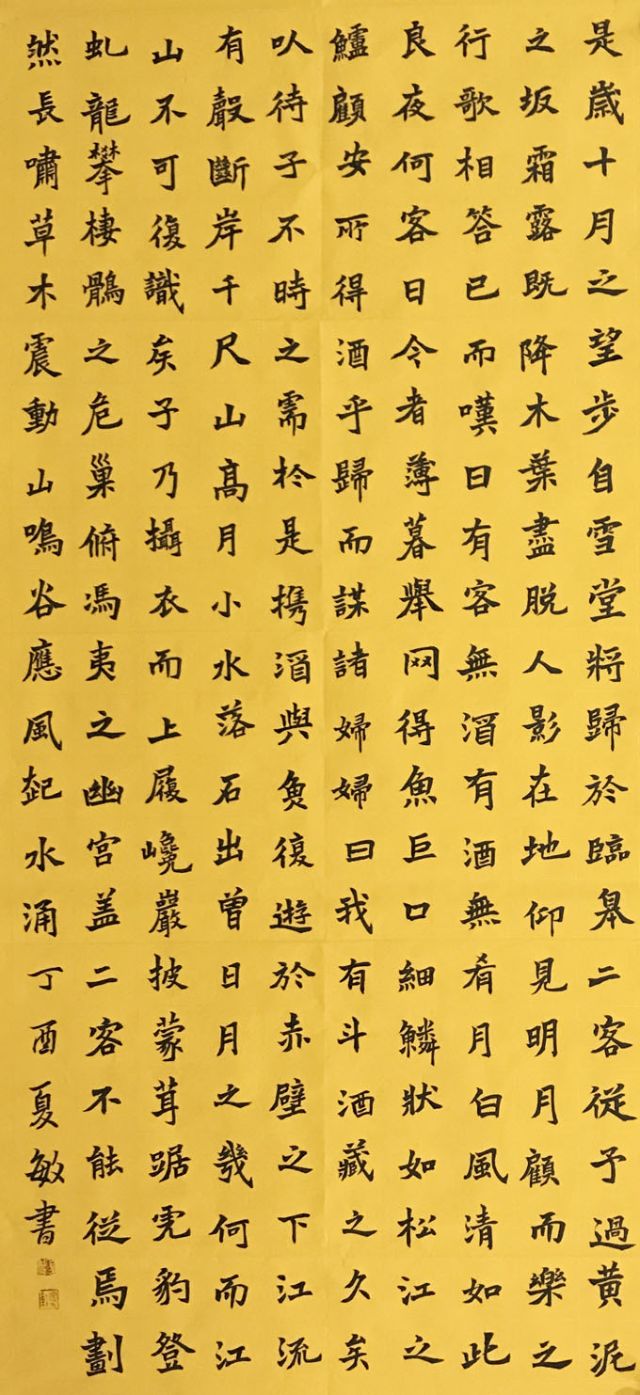 是歲十月之望步自雪堂將歸於臨皋二客從予過黃泥
之坂霜露既降木葉盡脫人影在地仰見明月顧而樂之
行歌相答已而嘆曰有客無酒有酒無肴月白風清如此
良夜何客曰今者薄暮舉网得魚巨口細鱗狀如松江之
鱸顧安所得酒乎歸而謀諸婦婦曰我有斗酒藏之久矣
以待子不時之需於是携酒與魚復遊於赤壁之下江流
有聲斷岸千尺山高月小水落石出曾日月之幾何而江
山不可復識矣子乃攝衣而上履巉巖披蒙茸踞虎豹登
虬龍攀棲鶻之危巢俯馮夷之幽宮盖二客不能從焉劃
然長嘯草木震動山鳴谷應風起水涌丁酉夏敏書